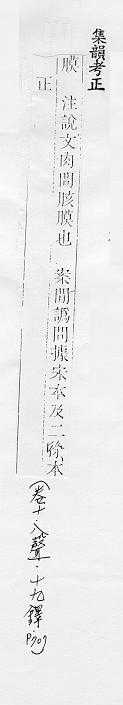 集韻考正
膜　注說文肉閒胲膜也　案閒譌問據宋本及二徐本
正
（卷十‧入聲‧十九鐸 P.709